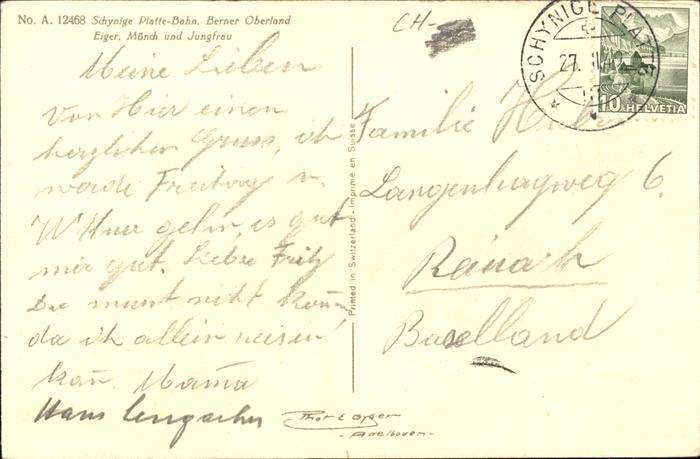 No. A. 12468 Schynige Platte-Bahn, Berner Oberland
Eiger, Mönch und Jungfrau
CH-
SCHYNIGE PLATTE
27.
10 HELVETIA
Meine Lieben
Von Hier einen
herzlichen Gruss, ich
werde Freitag
gehn, es gut
mir gut. Liebe Fritz
Du must nicht
da ich allein reisen
kan. Mama
Hans
Printed in Switzerland - Imprimé en Suisse
Familie
Langenhagweg 6.
Reinach
Baselland
Adelboden